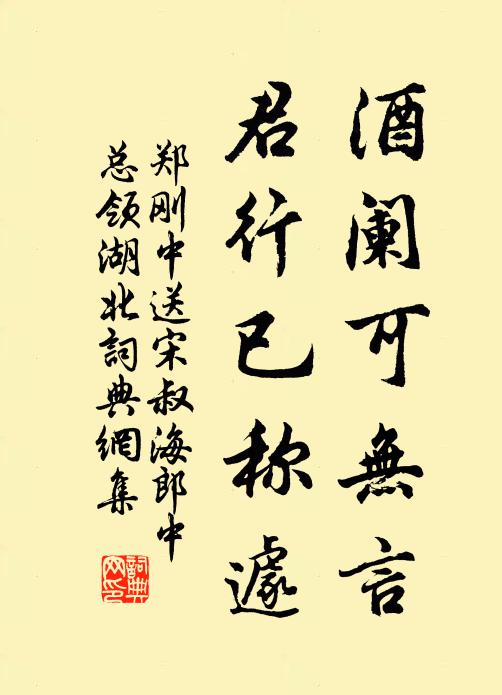 酒阑可無言
君行已称遽
郑刚中送宋叔海郎中
总领湖北詞典網集
詞典网印